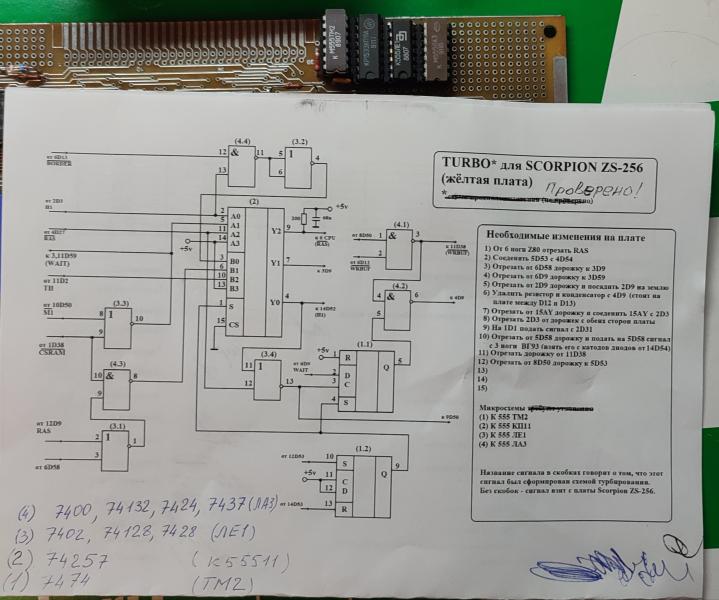 К М555ТМ2
8907
К555ЛЕ1
8807
TURBO* для SCORPION ZS-256
(жёлтая плата) Проверено!
Необходимые изменения на плате
1) От 6 ноги Z80 отрезать RAS
2) Соеденить 5D53 с 4D54
3) Отрезать от 6D58 дорожку к 3D9
4) Отрезать от 6D9 дорожку к 3D59
5) Отрезать от 2D9 дорожку и посадить 2D9 на землю
6) Удалить резистор и конденсатор с 4D9 (стоят на
плате между D12 и D13)
7) Отрезать от 15AY дорожку и соеденить 15AY с 2D3
8) Отрезать 2D3 от дорожек с обеих сторон платы
9) На 1D1 подать сигнал с 2D31
10) Отрезать от 5D58 дорожку и подать на 5D58 сигнал
с 3 ноги ВГ93 (взять его с катодов диодов от 14D54)
11) Отрезать дорожку от 11D38
12) Отрезать от 8D50 дорожку к 5D53
13)
14)
15)
Микросхемы
(1) К 555 ТМ2
(2) К 555 КП11
(3) К 555 ЛЕ1
(4) К 555 ЛА3
Название сигнала в скобках говорит о том, что этот
сигнал был сформирован схемой турбирования.
Без скобок - сигнал взят с платы Scorpion ZS-256.
(4.4)
(3.2)
12
&
11
5
1
4
13
6
от 6D13
BORDER
от 2D3
H1
от 4D27
RAS
+5v
к 3,11D59
(WAIT)
от 11D2
TH
от 10D50
M1
от 1D38
CSRAM
(2)
2
5
11
14
3
6
10
13
1
15
A0
A1
A2
A3
B0
B1
B2
B3
S
CS
Y2
Y1
Y0
9
7
4
+5v
200
68n
к 6 CPU
(RAS)
к 3D9
к 14D52
(H1)
(4.1)
от 8D50
1
&
3
к 11D38
(WRBUF)
от 6D13
WRBUF
2
(4.2)
4
&
6
к 4D9
5
(3.3)
8
1
10
9
(4.3)
10
&
8
9
(3.4)
11
1
13
12
(1.1)
+5v
1
R
от 6D9
WAIT
2
D
3
C
4
S
Q
5
к 9D50
(3.1)
от 12D9
RAS
2
1
1
3
от 6D58
(1.2)
от 12D53
10
S
+5v
11
C
12
D
Q
9
от 14D53
13
R
(4) 7400, 74132, 7424, 7437 (ЛА3)
(3) 7402, 74128, 7428 (ЛЕ1)
(2) 74257 (К55511)
(1) 7474 (ТМ2)